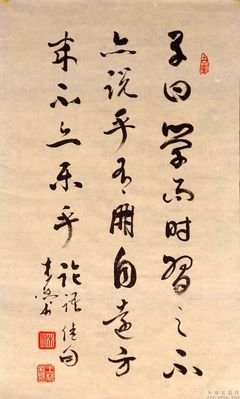 子曰學而时習之不
亦说乎有朋自遠方
来不亦乐乎
论语佳句